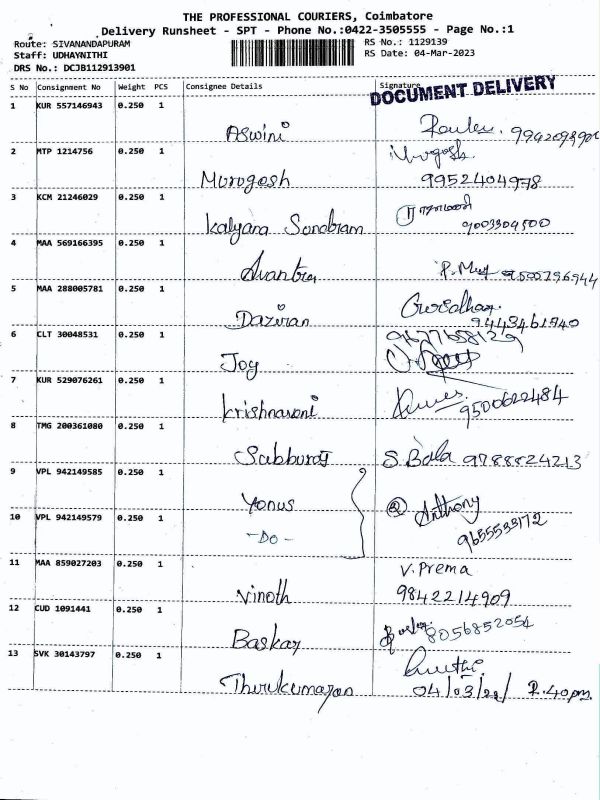 THE PROFESSIONAL COURIERS, Coimbatore
Delivery Runsheet - SPT - Phone No.:0422-3505555 - Page No.:1
Route: SIVANANDAPURAM
Staff: UDHAYNITHI
DRS No.: DCJB112913901
RS No.: 1129139
RS Date: 04-Mar-2023
S No Consignment No Weight PCS Consignee Details Signature
DOCUMENT DELIVERY
1 KUR 557146943 0.250 1 Aswini
2 MTP 1214756 0.250 1 Murugesh Murogesh 9952404978
3 KCM 21246029 0.250 1 Kalyana 9003304500
4 MAA 569166395 0.250 1
5 MAA 288005781 0.250 1 9443461940
6 CLT 30048531 0.250 1 Joy
7 KUR 529076261 0.250 1 9500622484
8 TMG 200361080 0.250 1 S. Bala 9788824213
9 VPL 942149585 0.250 1 Yonus Anthony
10 VPL 942149579 0.250 1 -Do- 9655533172
11 MAA 859027203 0.250 1 Vinoth V. Prema 9842214909
12 CUD 1091441 0.250 1 Baskar 8056852054
13 SVK 30143797 0.250 1 Thirukumaran